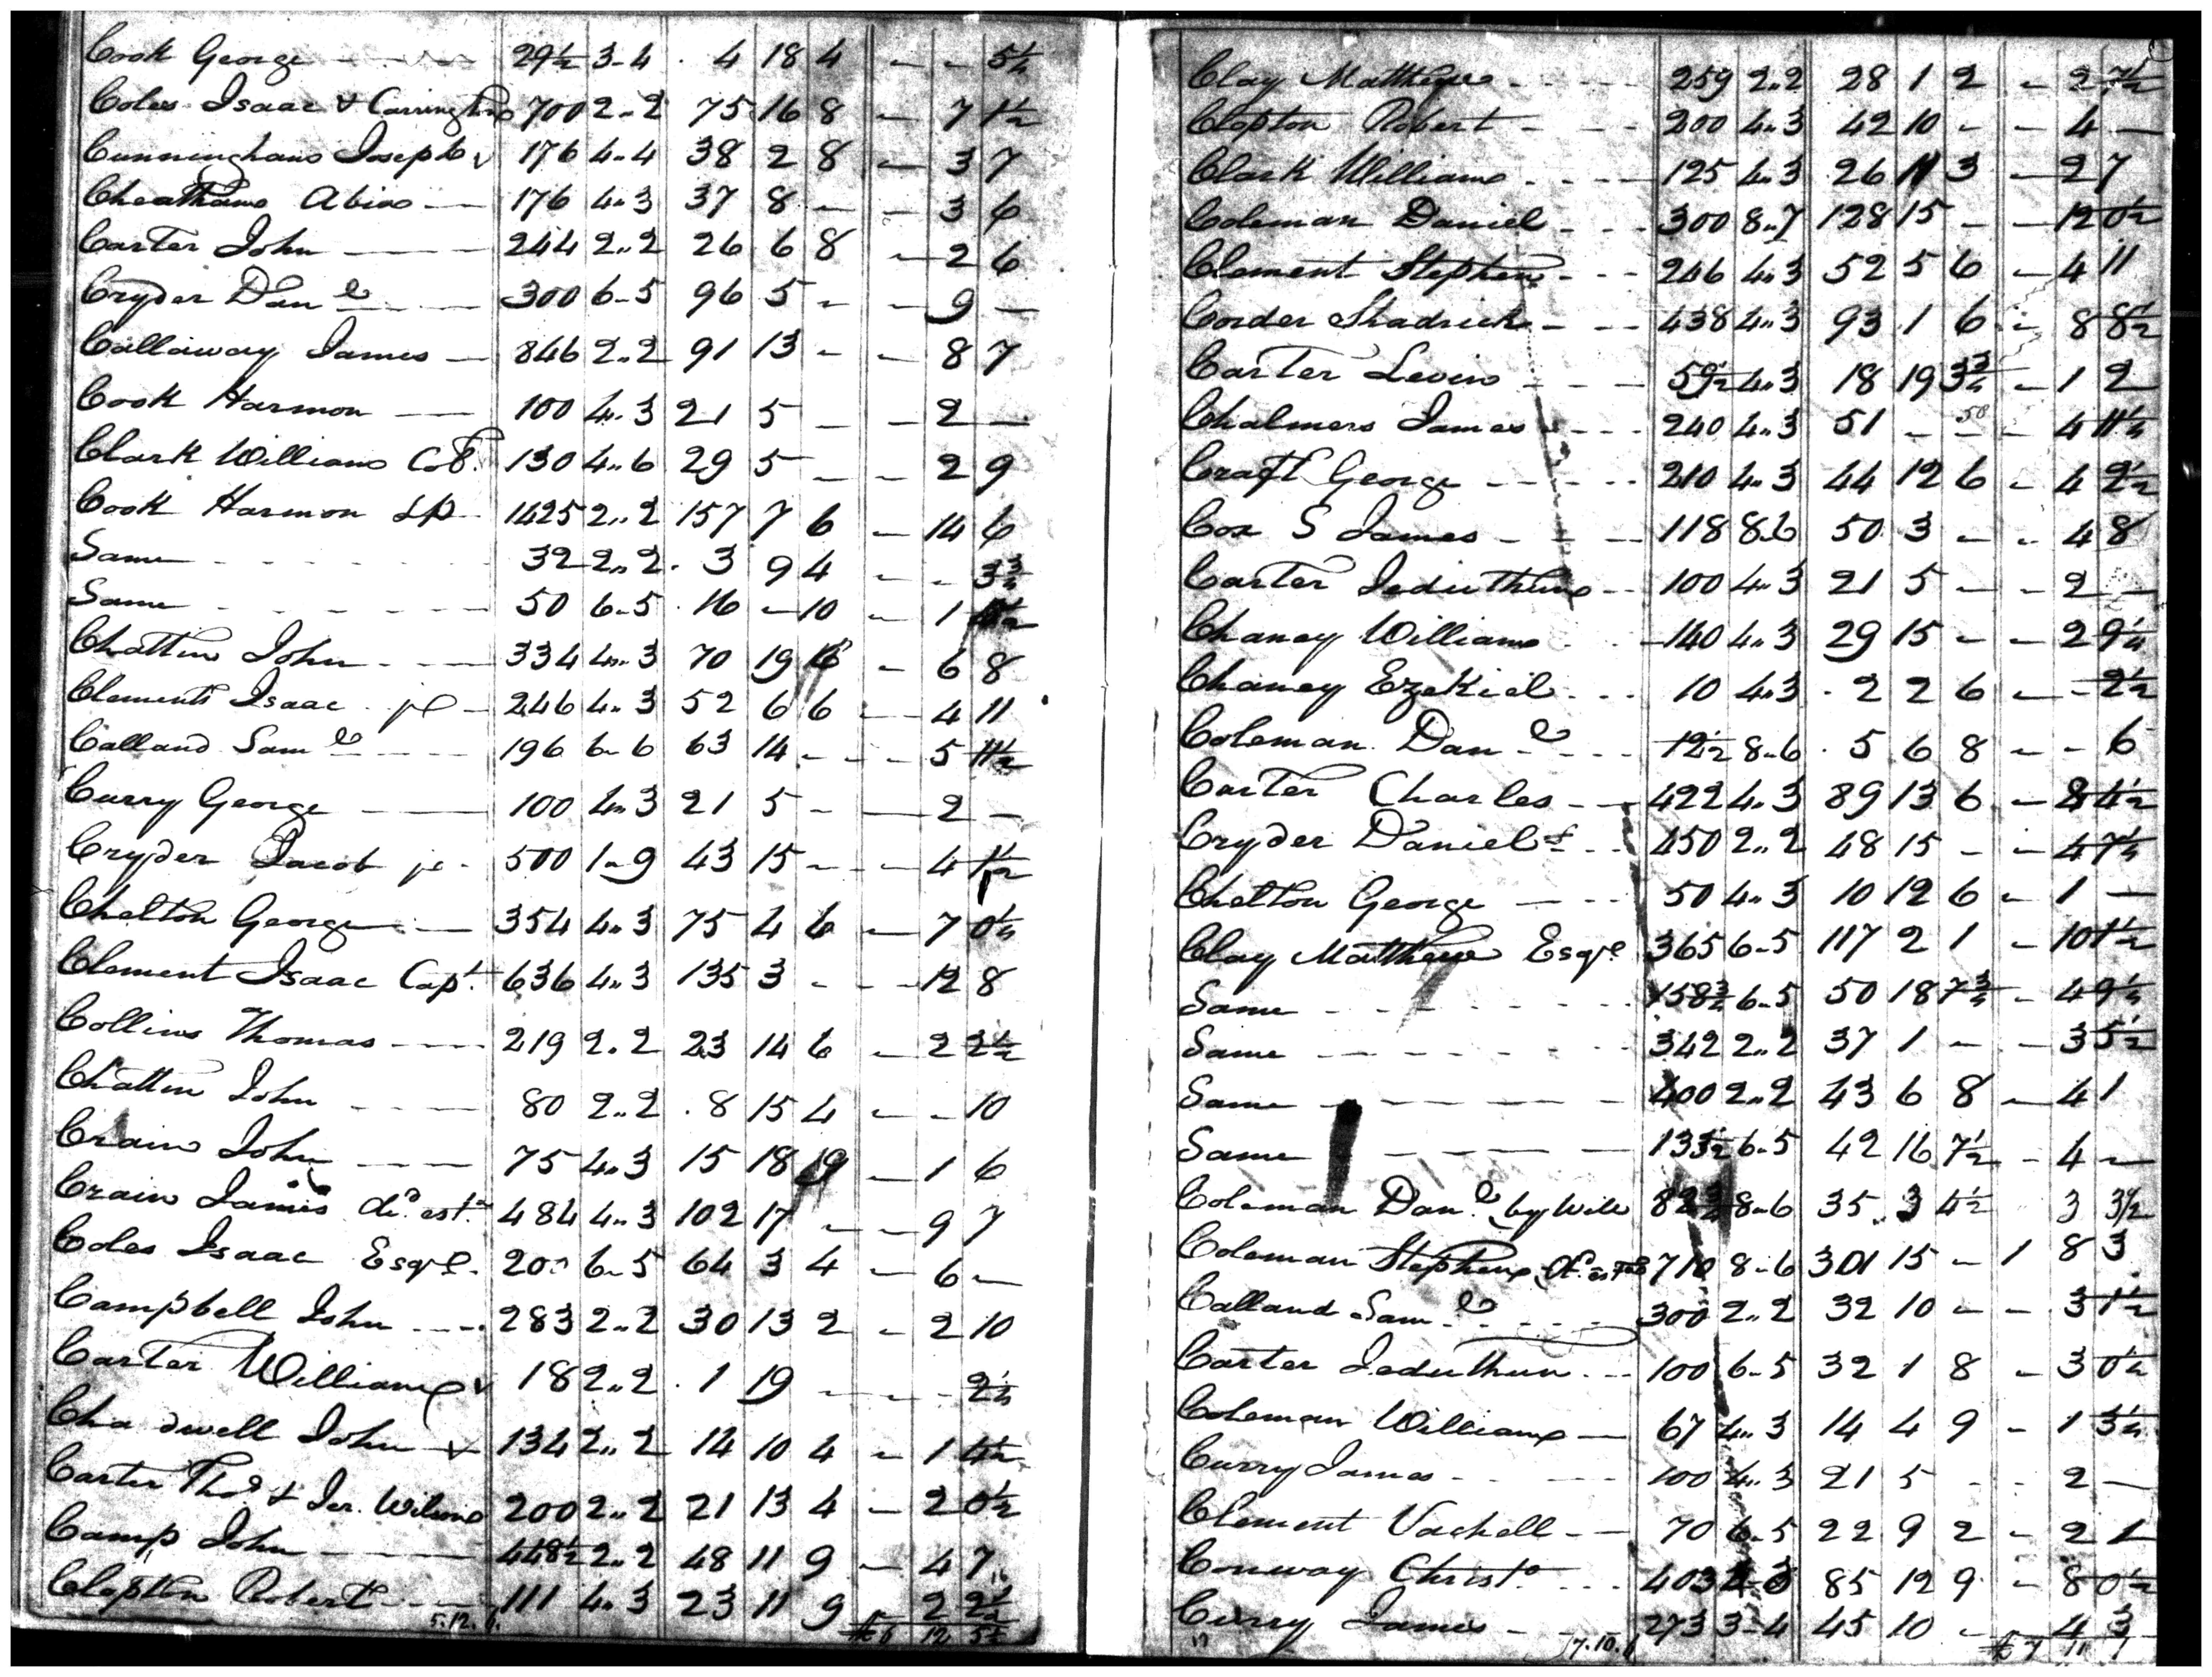 Cook George 29½ 3-4 4 18 4 - - 5¼
Coles Isaac & Carrington 700 2-2 75 16 8 - 7 1½
Cunningham Joseph v 176 4-4 38 2 8 - 3 7
Cheatham Abia 176 4-3 37 8 - - 3 6
Carter John 244 2-2 26 6 8 - 2 6
Cryder Danl 300 6-5 96 5 - - 9 -
Callaway James 846 2-2 91 13 - - 8 7
Cook Harmon 100 4-3 21 5 - - 2 -
Clark William 130 4-6 29 5 - - 2 9
Cook Harmon 1425 2-2 157 7 6 - 14 6
Same 32 2-2 3 9 4 - - 3¾
Same 50 6-5 16 - 10 - 1
Chattin John 334 4-3 70 19 6 - 6 8
Clements Isaac jr 246 4-3 52 6 6 - 4 11
Calland Saml 196 6-6 63 14 - - 5 11½
Curry George 100 4-3 21 5 - - 2 -
Cryder Jacob jr 500 1-9 43 15 - - 4 1½
Chelton George 354 4-3 75 4 6 - 7 0¼
Clement Isaac Capt 636 4-3 135 3 - - 12 8
Collins Thomas 219 2-2 23 14 6 - 2 2½
Chattin John 80 2-2 8 15 4 - - 10
Crain John 75 4-3 15 18 9 - 1 6
Crain James dd. est. 484 4-3 102 17 - - 9 7
Coles Isaac Esqr. 200 6-5 64 3 4 - 6 -
Campbell John 283 2-2 30 13 2 - 2 10
Carter William v 18 2-2 1 19 - - - 2¼
Chadwell John v 134 2-2 14 10 4 - 1 4½
Carter Thos & Jer. Wilson 200 2-2 21 13 4 - 2 0½
Camp John 448½ 2-2 48 11 9 - 4 7
Clopton Robert 111 4-3 23 11 9 2 2¼
5.12.6. £6 12 5¼
Clay Matthew 259 2-2 28 1 2 - 2 7½
Clopton Robert 200 4-3 42 10 - - 4 -
Clark William 125 4-3 26 11 3 - 2 7
Coleman Daniel 300 8-7 128 15 - - 12 0½
Clement Stephen 246 4-3 52 5 6 - 4 11
Corder Shadrick 438 4-3 93 1 6 - 8 8½
Carter Levin 59½ 4-3 18 19 3¾ - 1 2
Chalmers James 240 4-3 51 - - - 4 11¼
Craft George 210 4-3 44 12 6 - 4 2½
Cox S James 118 8-6 50 3 - - 4 8
Carter Jeduthun 100 4-3 21 5 - - 2 -
Chaney William 140 4-3 29 15 - - 2 9¼
Chaney Ezekiel 10 4-3 2 2 6 - - 2½
Coleman Danl 12½ 8-6 5 6 8 - - 6
Carter Charles 422 4-3 89 13 6 - 8 4½
Cryder Daniel 450 2-2 48 15 - - 4 7¼
Chelton George 50 4-3 10 12 6 - 1 -
Clay Matthew Esqr 365 6-5 117 2 1 - 10 1½
Same 158¾ 6-5 50 18 7¾ - 4 9¼
Same 342 2-2 37 1 - - 3 5½
Same 400 2-2 43 6 8 - 4 1
Same 133½ 6-5 42 16 7½ - 4 -
Coleman Danl by Will 8-6 35 3 4½ 3 3½
Coleman Stephen dd. est. 710 8-6 301 15 - 1 8 3
Calland Saml 300 2-2 32 10 - - 3 1½
Carter Jeduthun 100 6-5 32 1 8 - 3 0¼
Coleman William 67 4-3 14 4 9 - 1 3¼
Curry James 100 4-3 21 5 - - 2 -
Clement Vachell 70 6-5 22 9 2 - 2 1
Conway Christo 403 4-3 85 12 9 - 8 0½
Curry James 273 3-4 45 10 - 4 3
7.10. £7 11 1